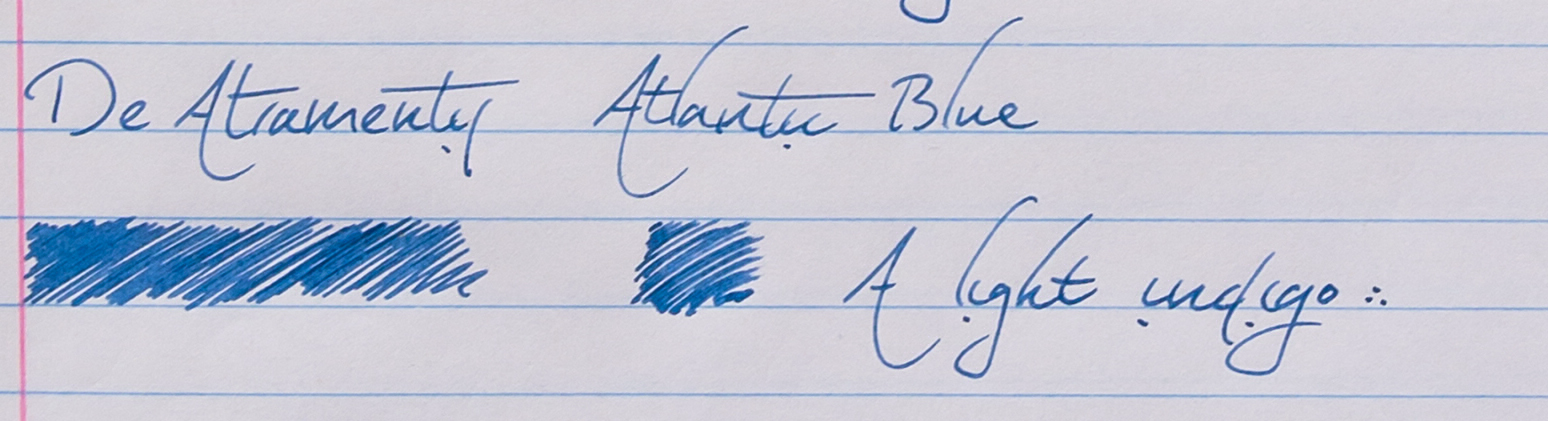 De Atramentis Atlantic Blue
A light indigo ∴